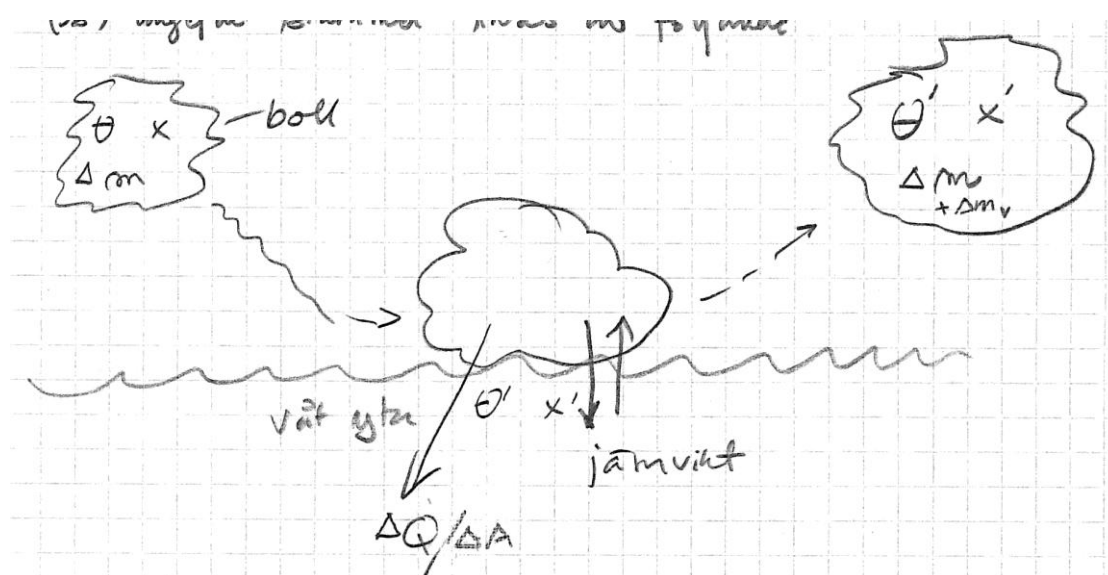 θ x
boll
Δm
θ' x'
Δm
+ Δm_v
våt yta
θ' x'
jämvikt
ΔQ/ΔA